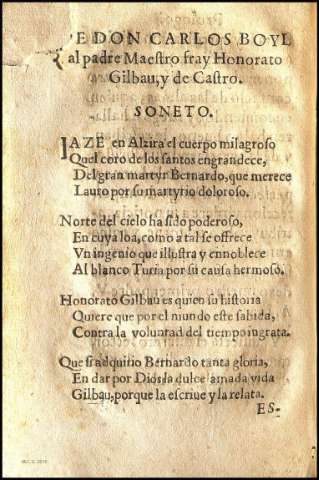 E DON CARLOS BOYL
al padre Maestro fray Honorato
Gilbau, y de Castro.
SONETO.
IAZE en Alzira el cuerpo milagroso
Quel coro de los santos engrandece,
Del gran martyr Bernardo, que merece
Lauro por su martyrio doloroso.
Norte del cielo ha sido poderoso,
En cuya loa, como a tal se offrece
Vn ingenio que illustra y ennoblece
Al blanco Turia por su causa hermoso.
Honorato Gilbau es quien su historia
Quiere que por el mundo este sabida,
Contra la voluntad del tiempo ingrata.
Que si adquirio Bernardo tanta gloria,
En dar por Dios la dulce amada vida
Gilbau, porque la escriue y la relata.
ES-